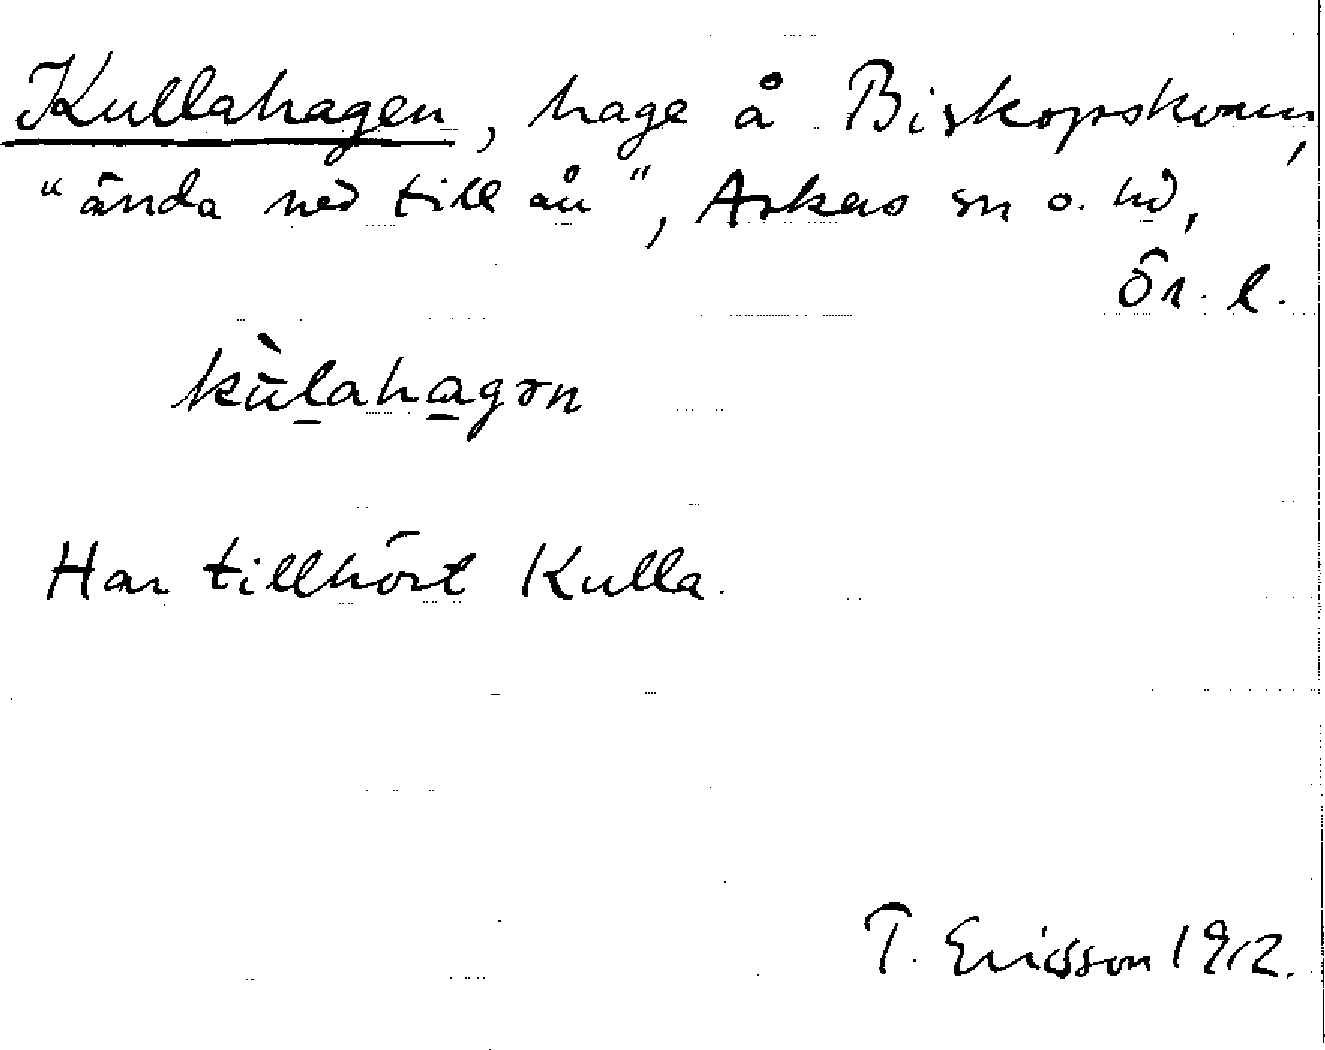 Kullahagen, hage å Biskopskvarn,
"ända ned till ån", Askers sn o. hd,
Ör. l.
kùlahagən
Har tillhört Kulla.
T. Ericsson 1912.